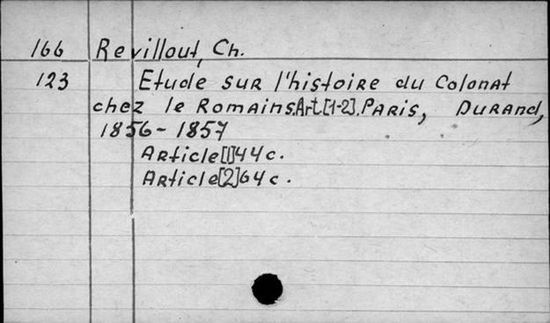 166 Revillout, Ch.
123 Etude sur l'histoire du Colonat
chez le Romains. Art. [1-2]. Paris, Durand,
1856-1857
Article [1] 44 c.
Article [2] 64 c.